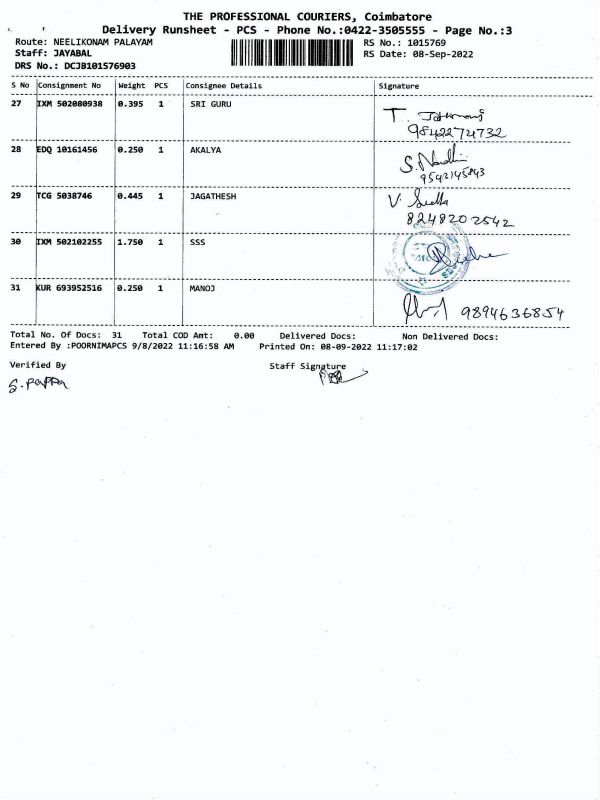 THE PROFESSIONAL COURIERS, Coimbatore
Delivery Runsheet - PCS - Phone No.:0422-3505555 - Page No.:3
Route: NEELIKONAM PALAYAM
RS No.: 1015769
Staff: JAYABAL
RS Date: 08-Sep-2022
DRS No.: DCJB101576903
S No Consignment No Weight PCS Consignee Details Signature
27 IXM 502080938 0.395 1 SRI GURU
T.
9842274732
28 EDQ 10161456 0.250 1 AKALYA
S. Nandhini
9543145843
29 TCG 5038746 0.445 1 JAGATHESH
V.
8248202542
30 IXM 502102255 1.750 1 SSS
31 KUR 693952516 0.250 1 MANOJ
9894636854
Total No. Of Docs: 31 Total COD Amt: 0.00 Delivered Docs: Non Delivered Docs:
Entered By :POORNIMAPCS 9/8/2022 11:16:58 AM Printed On: 08-09-2022 11:17:02
Verified By Staff Signature
S. Pappa